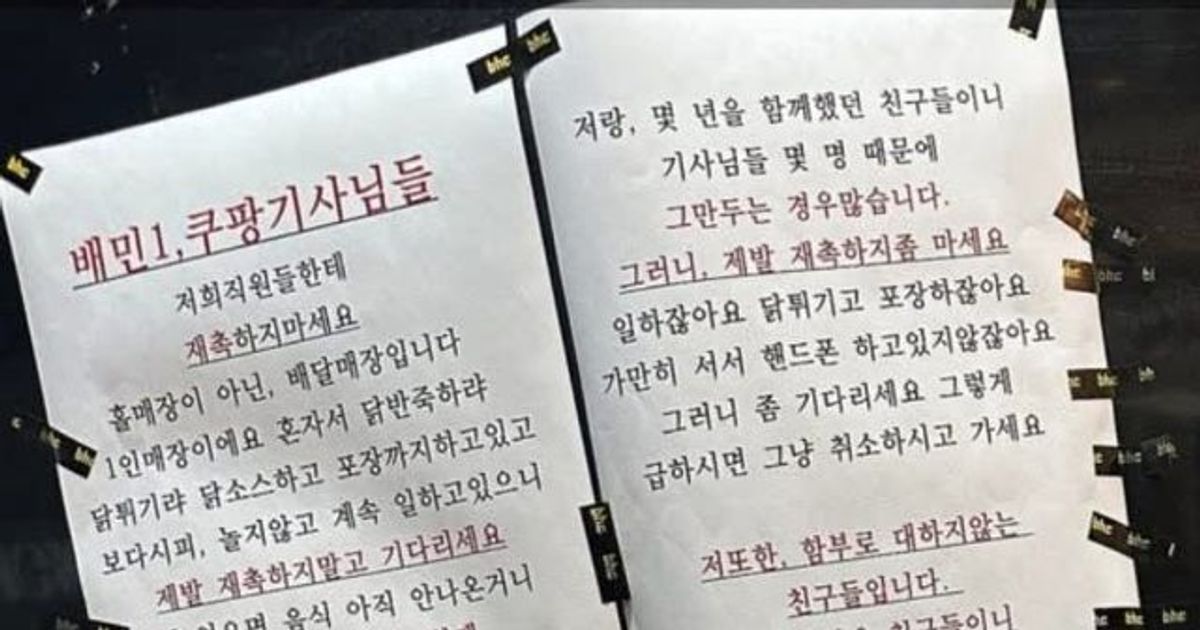 배민1,쿠팡기사님들
저희직원들한테
재촉하지마세요
홀매장이 아닌, 배달매장입니다
1인매장이에요 혼자서 닭반죽하랴
닭튀기랴 닭소스하고 포장까지하고있고
보다시피, 놀지않고 계속 일하고있으니
제발 재촉하지말고 기다리세요
음식 아직 안나온거니
저랑, 몇 년을 함께했던 친구들이니
기사님들 몇 명 때문에
그만두는 경우많습니다.
그러니, 제발 재촉하지좀 마세요
일하잖아요 닭튀기고 포장하잖아요
가만히 서서 핸드폰 하고있지않잖아요
그러니 좀 기다리세요 그렇게
급하시면 그냥 취소하시고 가세요
저또한, 함부로 대하지않는
친구들입니다.
친구들이니
bhc
bhc
bhc
bhc
bhc
bhc
bhc
bhc
bhc
bhc